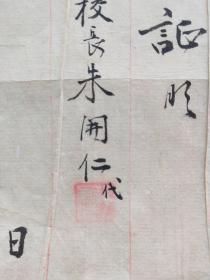 証明
校長朱開仁代
日